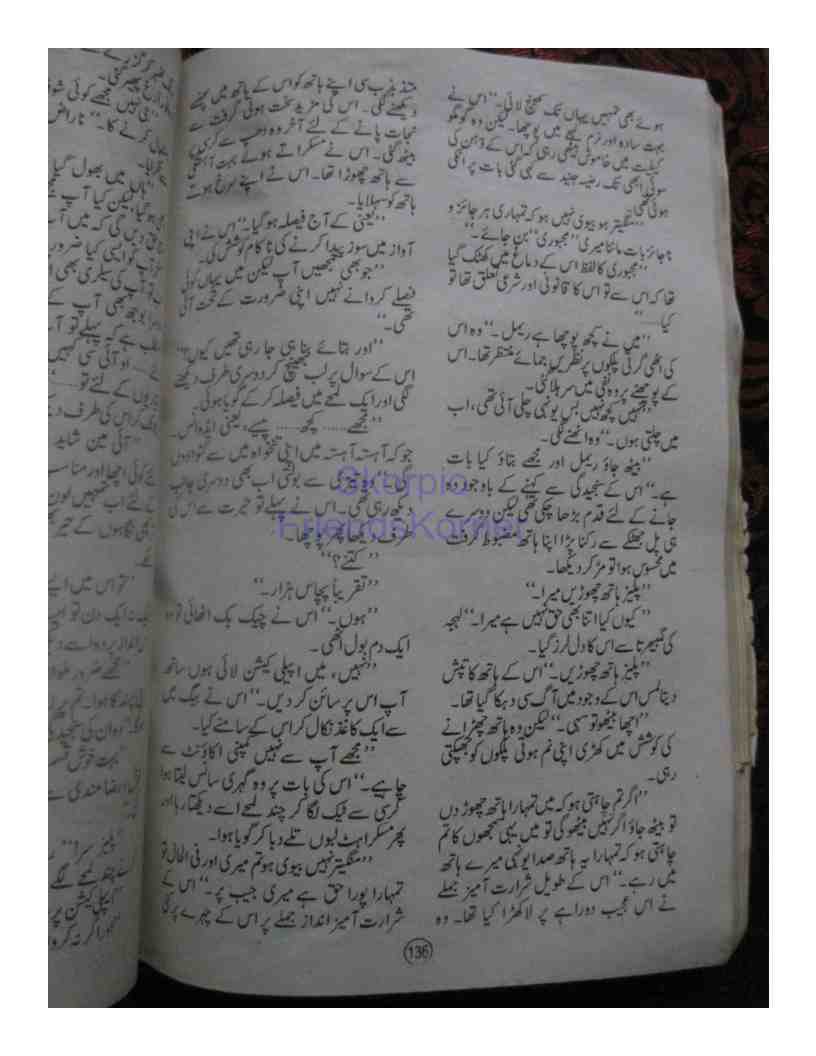 ہوئے بھی تمہیں یہاں تک کھینچ لائی۔‘‘ اس نے
بہت سادہ اور نرم لہجے میں پوچھا۔ لیکن وہ گومگو
کیفیت میں خاموش بیٹھی رہی کہ اس کے ذہن کی
سوئی ابھی تک رضیہ جنید سے کہی گئی بات پر اٹکی
ہوئی تھی۔
’’منگیتر ہو بیوی نہیں ہو کہ تمہاری ہر جائز و
ناجائز بات ماننا میری ’’مجبوری‘‘ بن جائے۔‘‘
’’مجبوری کا لفظ اس کے دماغ میں کھٹک گیا
تھا کہ اس سے تو اس کا قانونی اور شرعی تعلق تھا تو
کیا......‘‘
’’میں نے کچھ پوچھا ہے ریمل۔‘‘ وہ اس
کی اٹھی گرتی پلکوں پر نظریں جمائے منتظر تھا۔ اس
کے پوچھنے پر وہ نفی میں سر ہلا گئی۔
’’نہیں کچھ نہیں بس یونہی چلی آئی تھی، اب
میں چلتی ہوں۔‘‘ وہ اٹھنے لگی۔
’’بیٹھ جاؤ ریمل اور مجھے بتاؤ کیا بات
ہے۔‘‘ اس کے سنجیدگی سے کہنے کے باوجود وہ
جانے کے لئے قدم بڑھا چکی تھی لیکن دوسرے
ہی پل جھٹکے سے رکنا پڑا اپنا ہاتھ مضبوط گرفت
میں محسوس ہوا تو مڑ کر دیکھا۔
’’پلیز ہاتھ چھوڑیں میرا۔‘‘
’’کیوں کیا اتنا بھی حق نہیں ہے میرا۔‘‘ لہجہ
کی گمبھیرتا سے اس کا دل لرز گیا۔
’’پلیز ہاتھ چھوڑیں۔‘‘ اس کے ہاتھ کا تپش
دیتا لمس اس کے وجود میں آگ سی دہکا گیا تھا۔
’’اچھا بیٹھو تو سہی۔‘‘ لیکن وہ ہاتھ چھڑانے
کی کوشش میں کھڑی اپنی نم ہوتی پلکوں کو جھپکتی
رہی۔
’’اگر تم چاہتی ہو کہ میں تمہارا ہاتھ چھوڑ دوں
تو بیٹھ جاؤ اگر نہیں بیٹھو گی تو میں یہی سمجھوں گا تم
چاہتی ہو کہ تمہارا یہ ہاتھ صدا یونہی میرے ہاتھ
میں رہے۔‘‘ اس کے طویل شرارت آمیز جملے
نے اس عجیب دوراہے پر لا کھڑا کیا تھا۔ وہ
متذبذب سی اپنے ہاتھ کو اس کے ہاتھ میں پھنسے
دیکھنے لگی۔ اس کی مزید سخت ہوتی گرفت سے
نجات پانے کے لئے آخر وہ دھپ سے کرسی پر
بیٹھ گئی۔ اس نے مسکراتے ہوئے بہت آہستگی
سے ہاتھ چھوڑا تھا۔ اس نے اپنے سرخ ہوتے
ہاتھ کو سہلایا۔
’’یعنی کے آج فیصلہ ہو گیا۔‘‘ اس نے اپنی
آواز میں سوز پیدا کرنے کی ناکام کوشش کی۔
’’جو بھی سمجھیں آپ لیکن میں یہاں کوئی
فیصلے کروانے نہیں اپنی ضرورت کے تحت آئی
تھی۔‘‘
’’اور بتائے بنا ہی جا رہی تھیں کیوں؟‘‘
اس کے سوال پر لب بھینچ کر دوسری طرف دیکھنے
لگی اور ایک لمحے میں فیصلہ کر کے گویا ہوئی۔
’’مجھے...... کچھ...... پیسے، یعنی ایڈوانس۔
جو کہ آہستہ آہستہ میں اپنی تنخواہ میں سے کٹوا دوں
گی۔‘‘ وہ تیزی سے بولتی اب بھی دوسری جانب
دیکھ رہی تھی۔ اس نے پہلے تو حیرت سے اس کی
طرف دیکھا پھر پوچھا۔
’’کتنے؟‘‘
’’تقریباً پچاس ہزار۔‘‘
’’ہوں۔‘‘ اس نے چیک بک اٹھائی تو وہ
ایک دم بول اٹھی۔
’’نہیں، میں اپیلی کیشن لائی ہوں ساتھ
آپ اس پر سائن کر دیں۔‘‘ اس نے بیگ میں
سے ایک کاغذ نکال کر اس کے سامنے کیا۔
’’مجھے آپ سے نہیں کمپنی اکاؤنٹ سے
چاہیے۔‘‘ اس کی بات پر وہ گہری سانس لیتا ہوا
کرسی سے ٹیک لگا کر چند لمحے اسے دیکھتا رہا اور
پھر مسکراہٹ لبوں تلے دبا کر گویا ہوا۔
’’منگیتر نہیں بیوی ہو تم میری اور فی الحال تو
تمہارا پورا حق ہے میری جیب پر۔‘‘ اس کے
شرارت آمیز انداز جملے پر اس کے چہرے پر کئی
Skorpio
FriendsKorner
136